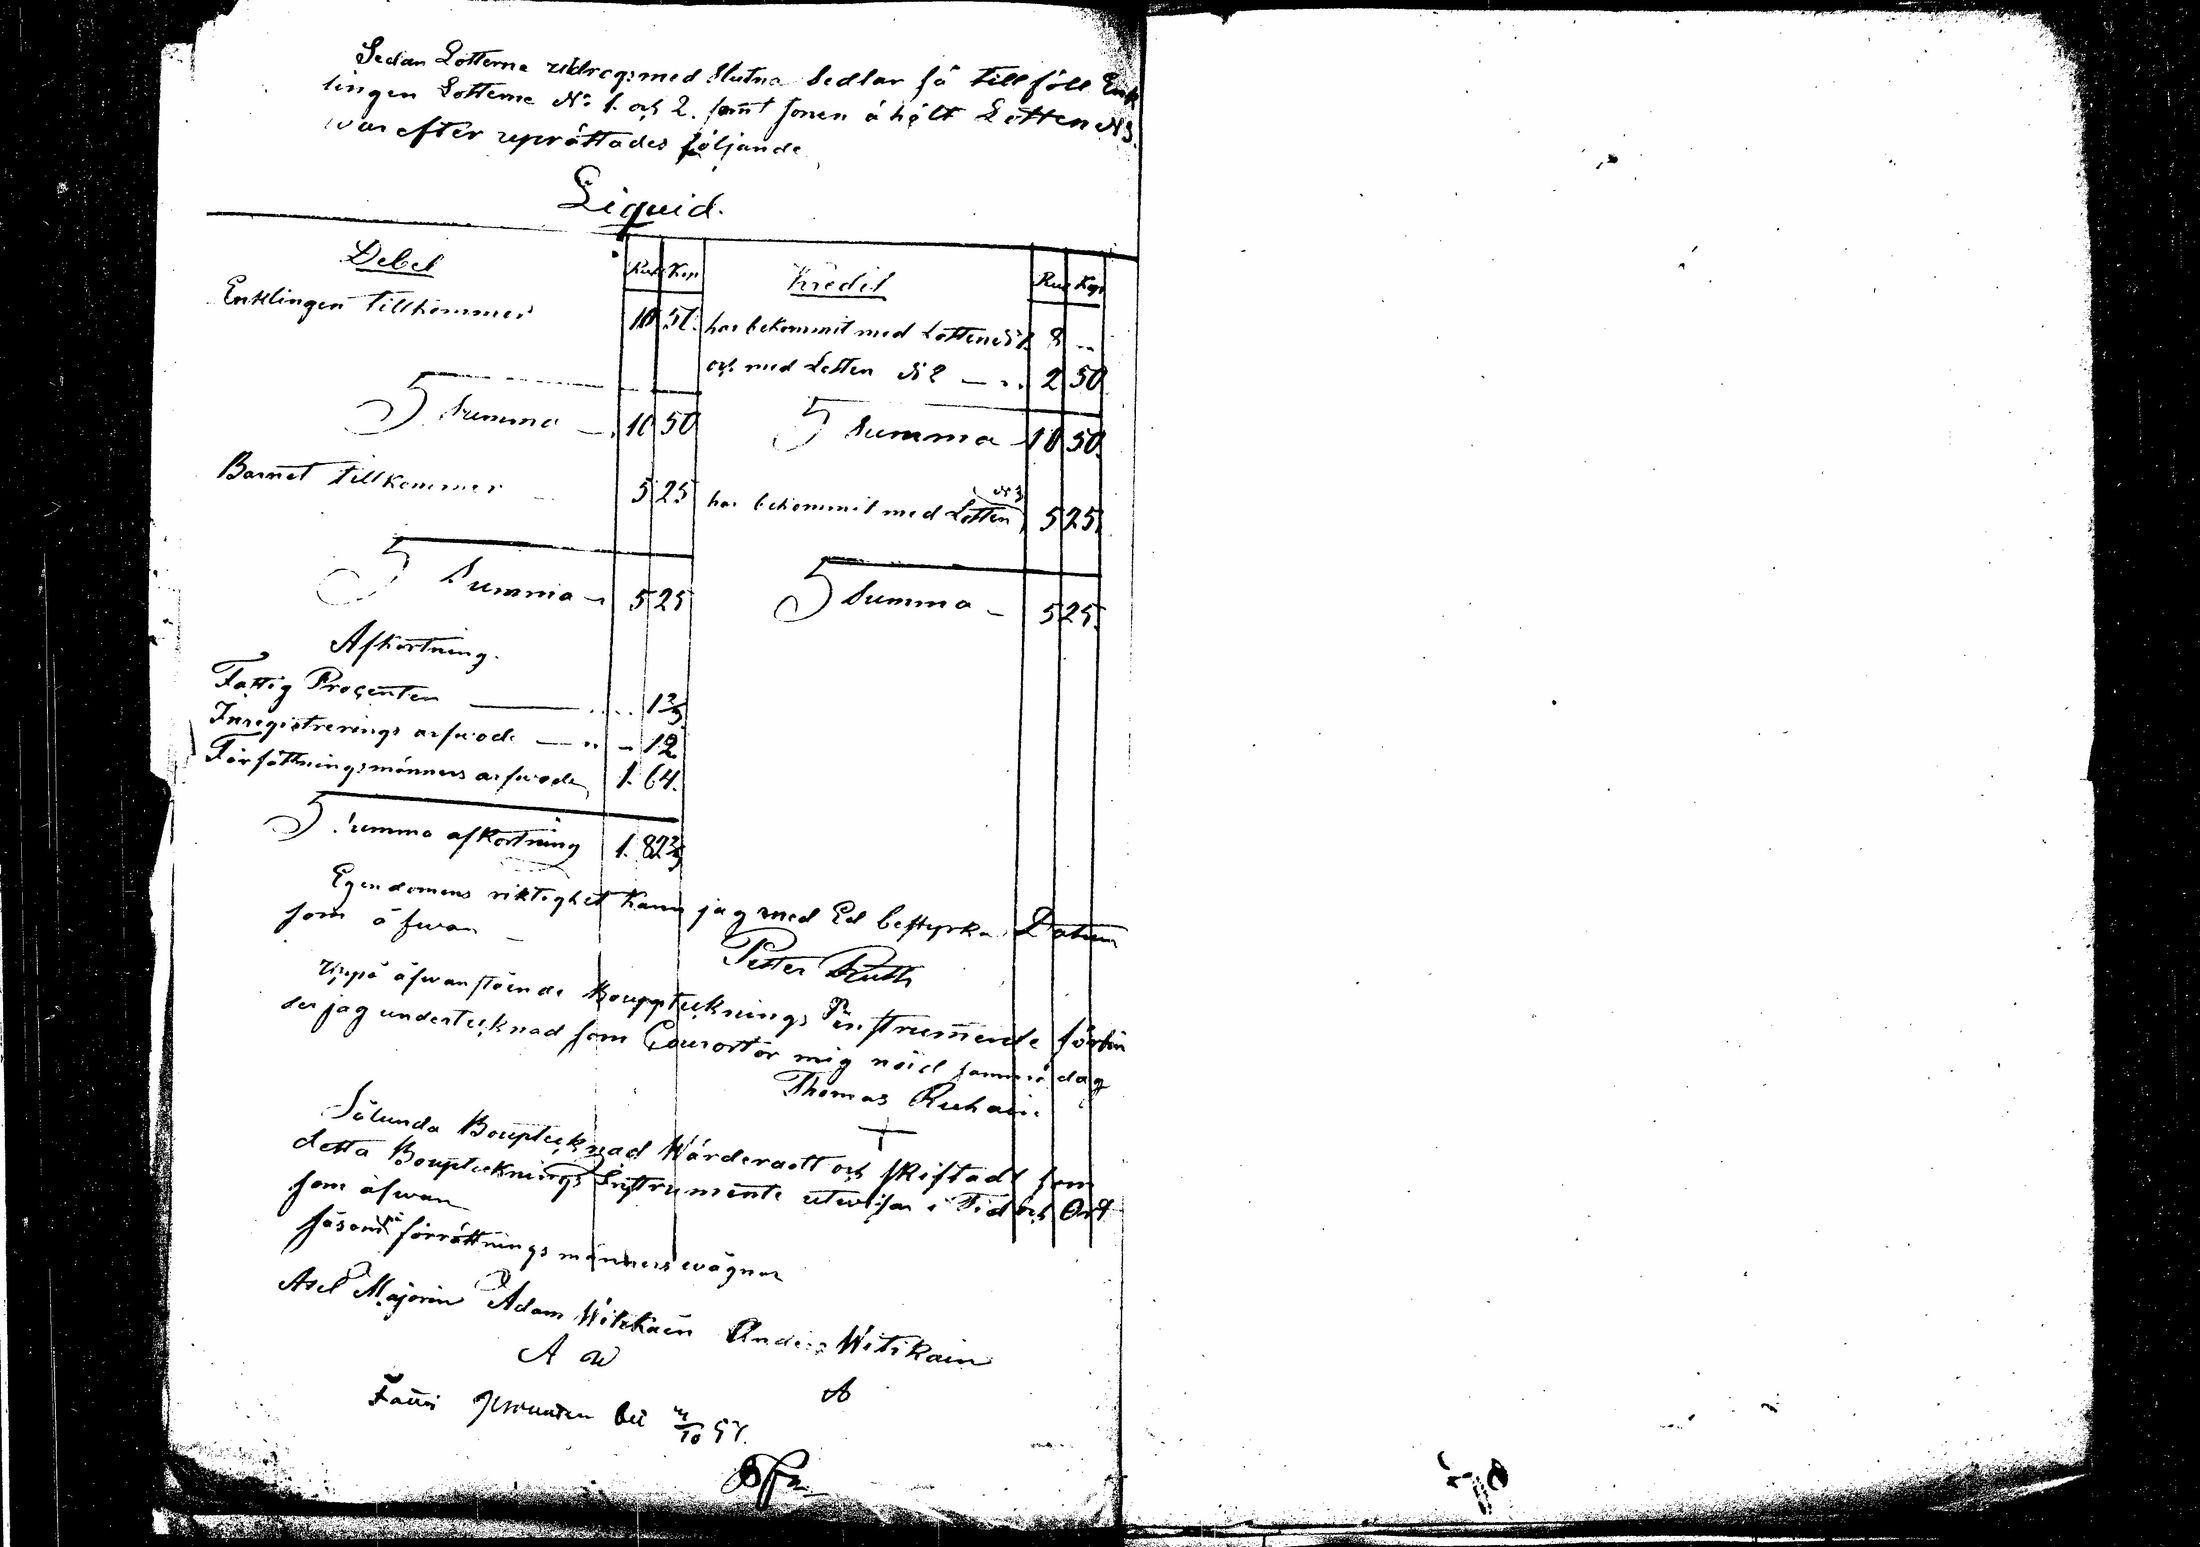 Sedan Lotterna utdrogs med Slutna Sedlar så tillföll Enk
lingen Lotterne No 1. och 2. samt sonen åhölt Lotten N 3.
var efter uprättades följande
Liquid.
Debet Rub Kop Kredit Rub Kop
Enklingen tillkommer 10 50. har bekommit med Lotten No 1. 8 --
och med Lotten N 2 — 2 50
Summa — 10 50 Summa 10 50.
Barnet tillkommer 5 25 har bekommit med Lotten N 3 5 25.
Summa — 5 25 Summa — 5 25.
Afkortning.
Fattig Procenten — 1 2/3
Inregistrerings arfwode — 12
Förfättningsmänners arfwode 1. 64.
Summa afkortning 1. 82 2/3
Egendomens riktighet kann jag med Ed bestyrka Datum
som åfwan
Petter Ruth
Uppå åfwanstående Bouppteknings Instrumente förbin
der jag undertecknad som Courator mig nöid samma dag
Thomas
Sålunda Bouptecknad Wärderadt och skiftadt som
detta Boupteknings Instrumente utwisar i Tid och Ort
som åfwan
såsom på förrättnings männers wägnar
Axel Majorin Adam Witikain Anders Witikain
A W
A